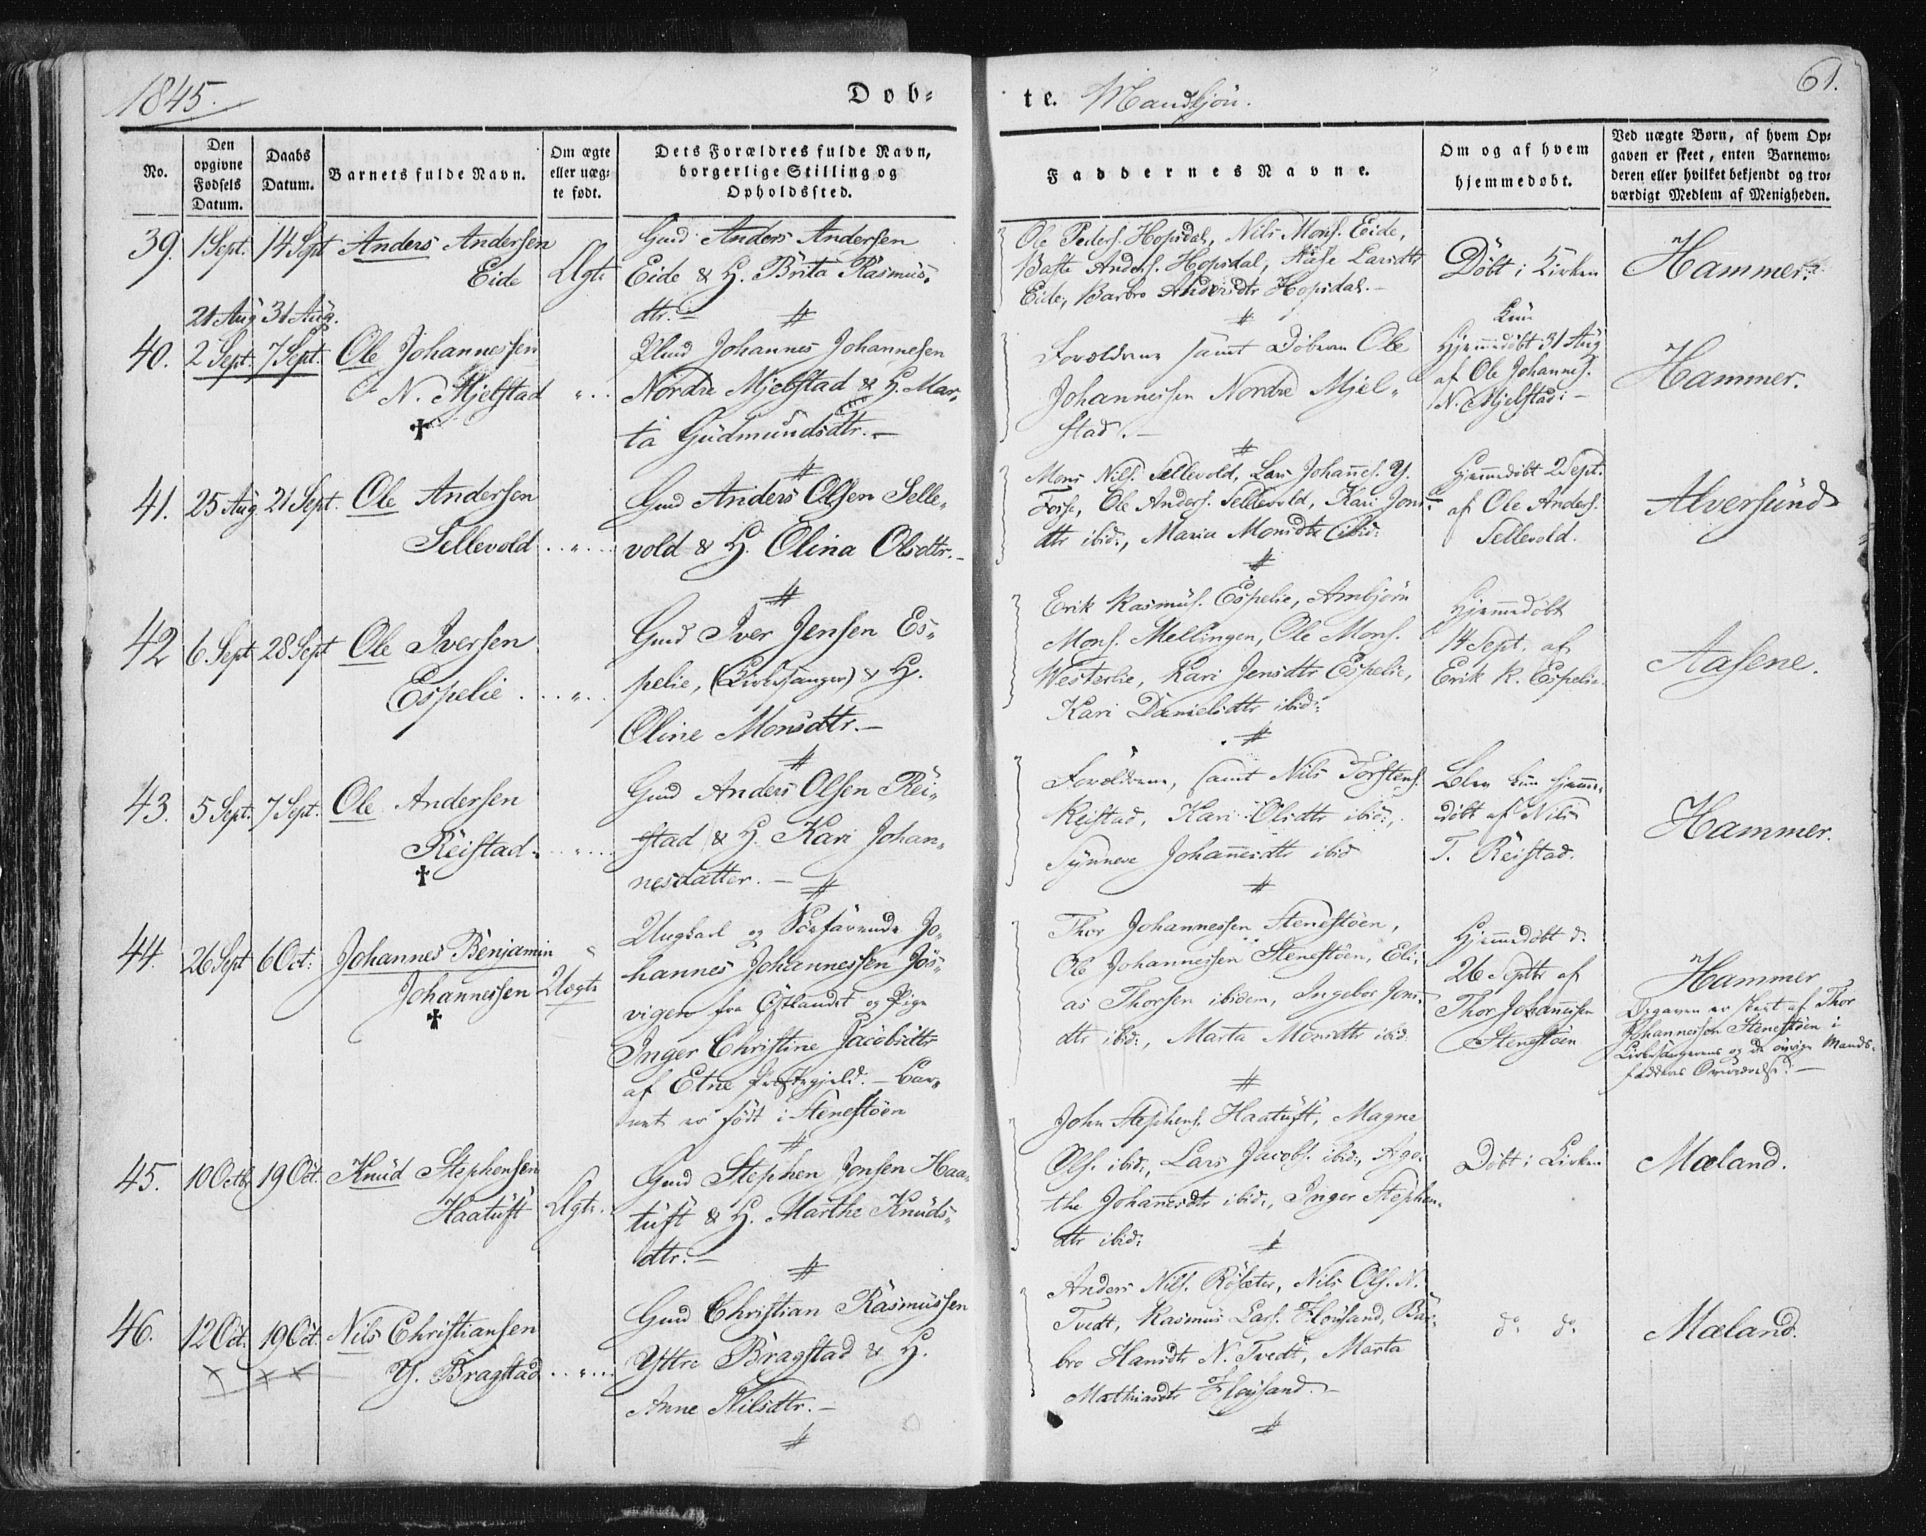 1845.
Døb-
te. Mandkjön.
61.
No.
Den opgivne Fødsels Datum.
Daabs Datum.
Barnets fulde Navn.
Om ægte eller uæg- te født.
Dets Forældres fulde Navn, borgerlige Stilling og Opholdssted.
Faddernes Navne.
Om og af hvem hjemmedøbt.
Ved uægte Børn, af hvem Op- gaven er skeet, enten Barnemo- deren eller hvilket bekjendt og tro- værdigt Medlem af Menigheden.
39. 1 Sept. 14 Sept Anders Andersen
Eide
Ægte
Gmd Anders Andersen
Eide & H. Brita Rasmus-
dtr.
Ole Peders. Hopsdal, Nils Mons. Eide,
Anders. Hopsdal, Aase Larsdtr
Eide, Barbro Andersdtr Hopsdal.
Døbt i Kirken
Hammer.
21 Aug 31 Aug.
40. 2 Sept. 7 Sept. Ole Johannessen
N. Mjelstad
Johannes Johannesen
Nordre Mjelstad & H. Mar-
ta Gudmundsdtr.
Forældrene samt Døberen Ole
Johannessen Nordre Mjel-
stad.
Kun
Hjemmedøbt 31 Aug
af Ole Johannes.
N. Mjelstad.
Hammer.
41. 25 Aug 21 Sept. Ole Andersen
Sellevold
Gmd Anders Olsen Selle-
vold & H. Olina Olsdtr.
Mons Nils. Sellevold, Lars Johannes. Y.
Fosse, Ole Anders. Sellevold, Kari Jons-
dtr ibid:, Maria Monsdtr ibid:
Hjemmedøbt 2 Sept.
af Ole Anders.
Sellevold.
Alversund
42 6 Sept 28 Sept Ole Iversen
Espelie
Gmd Iver Jensen Es-
pelie, (Kirkesanger) & H.
Oline Monsdtr.
Erik Rasmus. Espelie, Ambjørn
Mons. Mellingen, Ole Mons.
Westerlie, Kari Jensdtr Espelie,
Kari Danielsdtr ibid:
Hjemmedøbt
14 Sept. af
Erik R. Espelie.
Aasene.
43. 5 Sept. 7 Sept. Ole Andersen
Reistad
Gmd Anders Olsen Rei-
stad & H. Kari Johan-
nesdatter.
Forældrene, samt Nils Torstens.
Reistad, Kari Olsdtr ibid:,
Synneve Johannesdtr ibid
Blev kun hjemme-
døbt af Nils
T. Reistad.
Hammer.
44. 26 Sept 6 Oct: Johannes Benjamin
Johannessen
Uægte
Ungkarl og Søefarende Jo-
hannes Johannessen Jös-
vigen fra Östlandet og Pige
Inger Christine Jacobsdtr
af Etne Præstegjeld. - Bar-
net er født i Stenestöen
Thor Johannessen Stenestöen,
Ole Johannessen Stenestöen, Eli-
as Thorsen ibidem, Ingebor Jons-
dtr ibid:, Marta Monsdtr ibid
Hjemmedøbt d.
26 Septbr af
Thor Johannessen
Stenestöen
Hammer
Opgaven er skeet af Thor
Johannessen Stenestöen i
Kirkesangerens og de øvrige Mands-
fadderes Overværelse.
45. 10 Octb 19 Oct. Knud Stephensen
Haatuft
Ægte
Gmd Stephen Jonsen Haa-
tuft & H. Marthe Knuds-
dtr.
John Stephens. Haatuft, Magne
Ols. ibid:, Lars Jacobs. ibid:, Aga-
the Johannesdtr ibid:, Inger Stephen-
dtr ibid:
Döbt i Kirken
Mæland.
46. 12 Oct. 19 Oct. Nils Christiansen
Y. Bragstad
Gmd Christian Rasmussen
Yttre Bragstad & H.
Anne Nilsdtr.
Anders Nils. Risæter, Nils Ols. N.
Tvedt, Rasmus Lars. Fløysand, Bar-
bro Hansdtr N. Tvedt, Marta
Mathiasdtr Fløysand.
do do
Mæland.